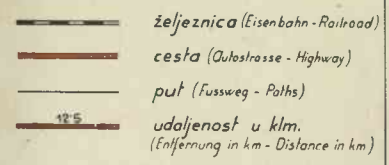 željeznica (Eisenbahn - Railroad)
cesta (Autostrasse - Highway)
put (Fussweg - Paths)
12·5 udaljenost u klm.
(Entfernung in km - Distance in km)